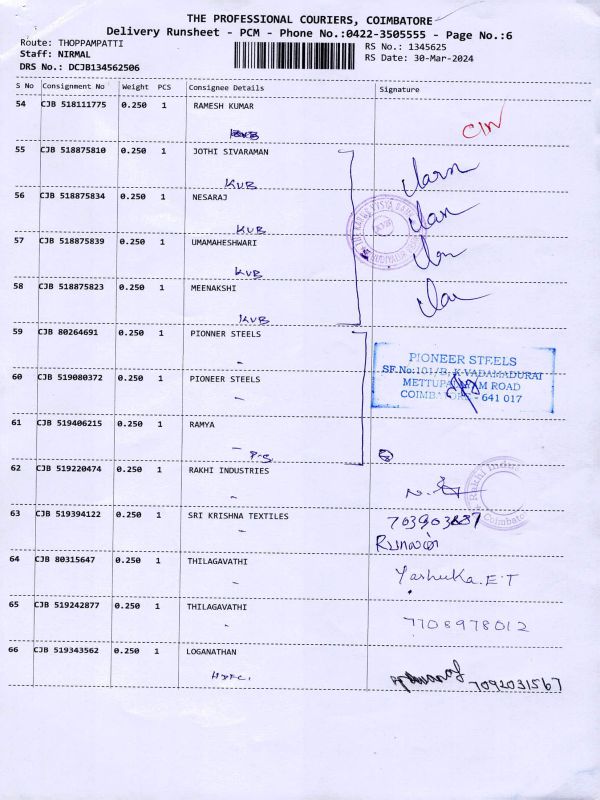 THE PROFESSIONAL COURIERS, COIMBATORE
Delivery Runsheet - PCM - Phone No.:0422-3505555 - Page No.:6
Route: THOPPAMPATTI RS No.: 1345625
Staff: NIRMAL RS Date: 30-Mar-2024
DRS No.: DCJB134562506
S No Consignment No Weight PCS Consignee Details Signature
54 CJB 518111775 0.250 1 RAMESH KUMAR
55 CJB 518875810 0.250 1 JOTHI SIVARAMAN
KVB
56 CJB 518875834 0.250 1 NESARAJ
KVB
57 CJB 518875839 0.250 1 UMAMAHESHWARI
KVB
58 CJB 518875823 0.250 1 MEENAKSHI
KVB
59 CJB 80264691 0.250 1 PIONNER STEELS
PIONEER STEELS
SF.No:101/B, K.VADAMADURAI
60 CJB 519080372 0.250 1 PIONEER STEELS
ROAD
- 641 017
61 CJB 519406215 0.250 1 RAMYA
P.S
62 CJB 519220474 0.250 1 RAKHI INDUSTRIES
63 CJB 519394122 0.250 1 SRI KRISHNA TEXTILES
64 CJB 80315647 0.250 1 THILAGAVATHI
Yashuka.E.T
65 CJB 519242877 0.250 1 THILAGAVATHI
7708978012
66 CJB 519343562 0.250 1 LOGANATHAN
HDFC. 7092031567